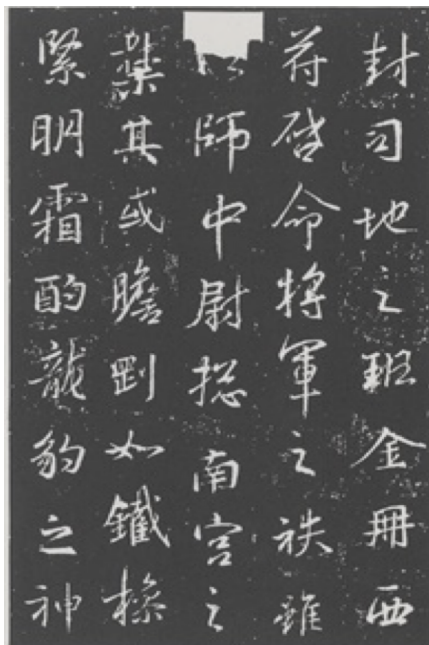 封司地之班金冊西
符啓命將軍之秩雖
師中尉揔南宮之
其或膽剛如鐵操
緊明霜酌龍豹之神